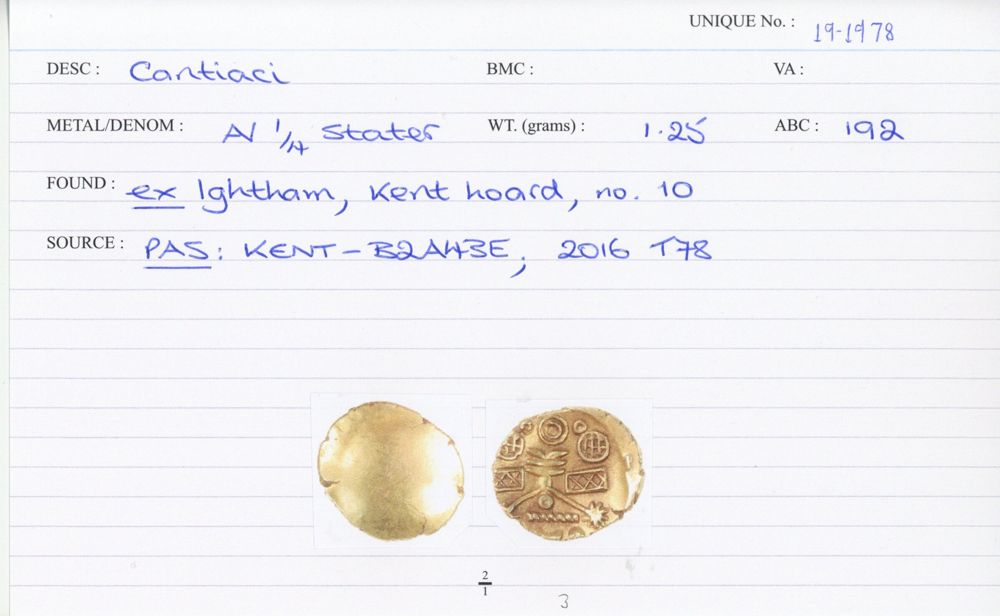 UNIQUE No. : 19-1978
DESC : Cantiaci BMC : VA :
METAL/DENOM : AV 1/4 Stater WT. (grams) : 1.25 ABC : 192
FOUND : ex Ightham, Kent hoard, no. 10
SOURCE : PAS: KENT-B2A43E, 2016 T78
2/1
3